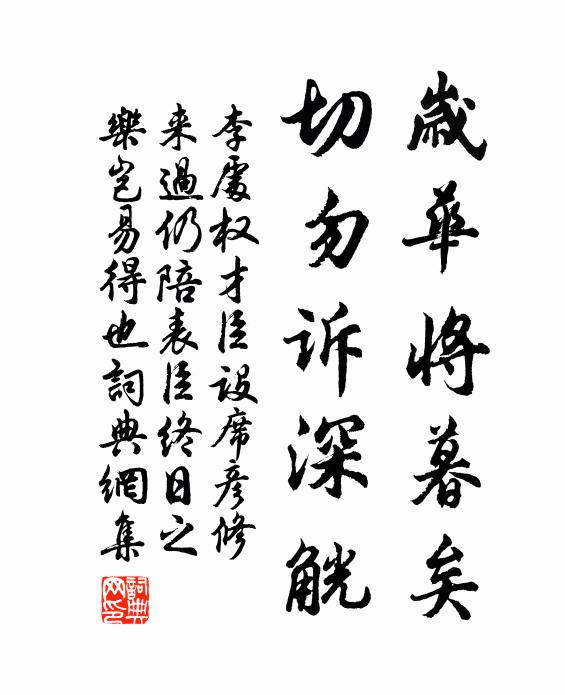 歲華將暮矣
切勿訴深觥
李處权才臣設席彥修
来過仍陪表臣終日之
樂豈易得也詞典網集
詞典网印